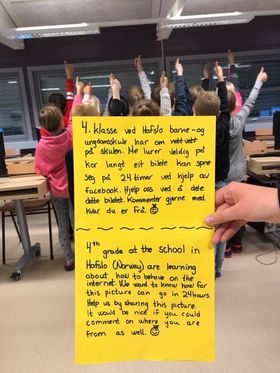 4. klasse ved Hafslo barne- og
ungdomsskule har om nettvett
på skulen. Me lurer veldig på
kor langt eit bilete kan spre
seg på 24 timar ved hjelp av
facebook. Hjelp oss ved å dele
dette biletet. Kommenter gjerne med
kvar du er frå. ☺
4th
grade at the school in
Hafslo (Norway) are learning
about how to behave on the
internet. We want to know how far
this picture can go in 24hours.
Help us by sharing this picture.
It would be nice if you could
comment on where you are
from as well. ☺